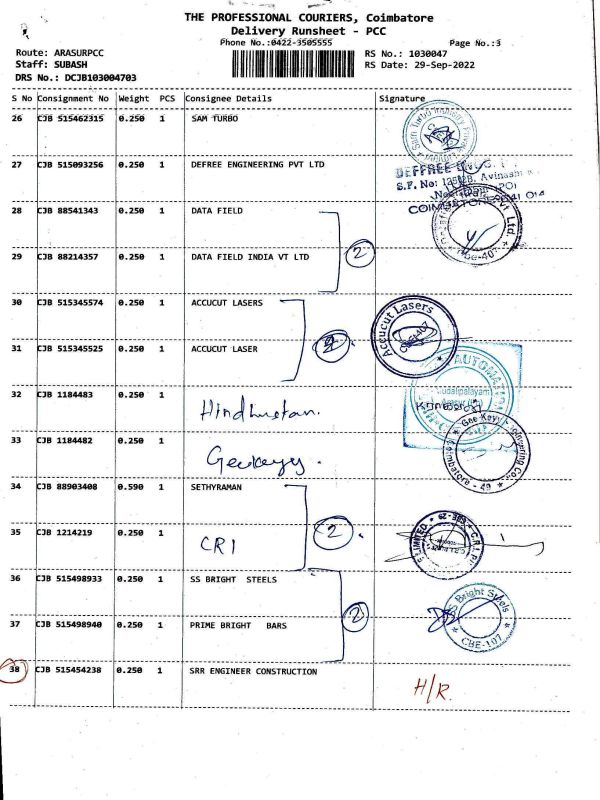 THE PROFESSIONAL COURIERS, Coimbatore
Delivery Runsheet - PCC
Phone No.:0422-3505555 Page No.:3
Route: ARASURPCC RS No.: 1030047
Staff: SUBASH RS Date: 29-Sep-2022
DRS No.: DCJB103004703
S No Consignment No Weight PCS Consignee Details Signature
26 CJB 515462315 0.250 1 SAM TURBO
27 CJB 515093256 0.250 1 DEFREE ENGINEERING PVT LTD
28 CJB 88541343 0.250 1 DATA FIELD
2
29 CJB 88214357 0.250 1 DATA FIELD INDIA VT LTD
30 CJB 515345574 0.250 1 ACCUCUT LASERS
Accucut Lasers
2
31 CJB 515345525 0.250 1 ACCUCUT LASER
AUTOMATION
32 CJB 1184483 0.250 1
Hindhustan.
33 CJB 1184482 0.250 1
Geekeyy.
34 CJB 88903408 0.590 1 SETHYRAMAN
2
35 CJB 1214219 0.250 1 CRI
36 CJB 515498933 0.250 1 SS BRIGHT STEELS
SS Bright Steels
CBE-107
2
37 CJB 515498940 0.250 1 PRIME BRIGHT BARS
38 CJB 515454238 0.250 1 SRR ENGINEER CONSTRUCTION
H/R.